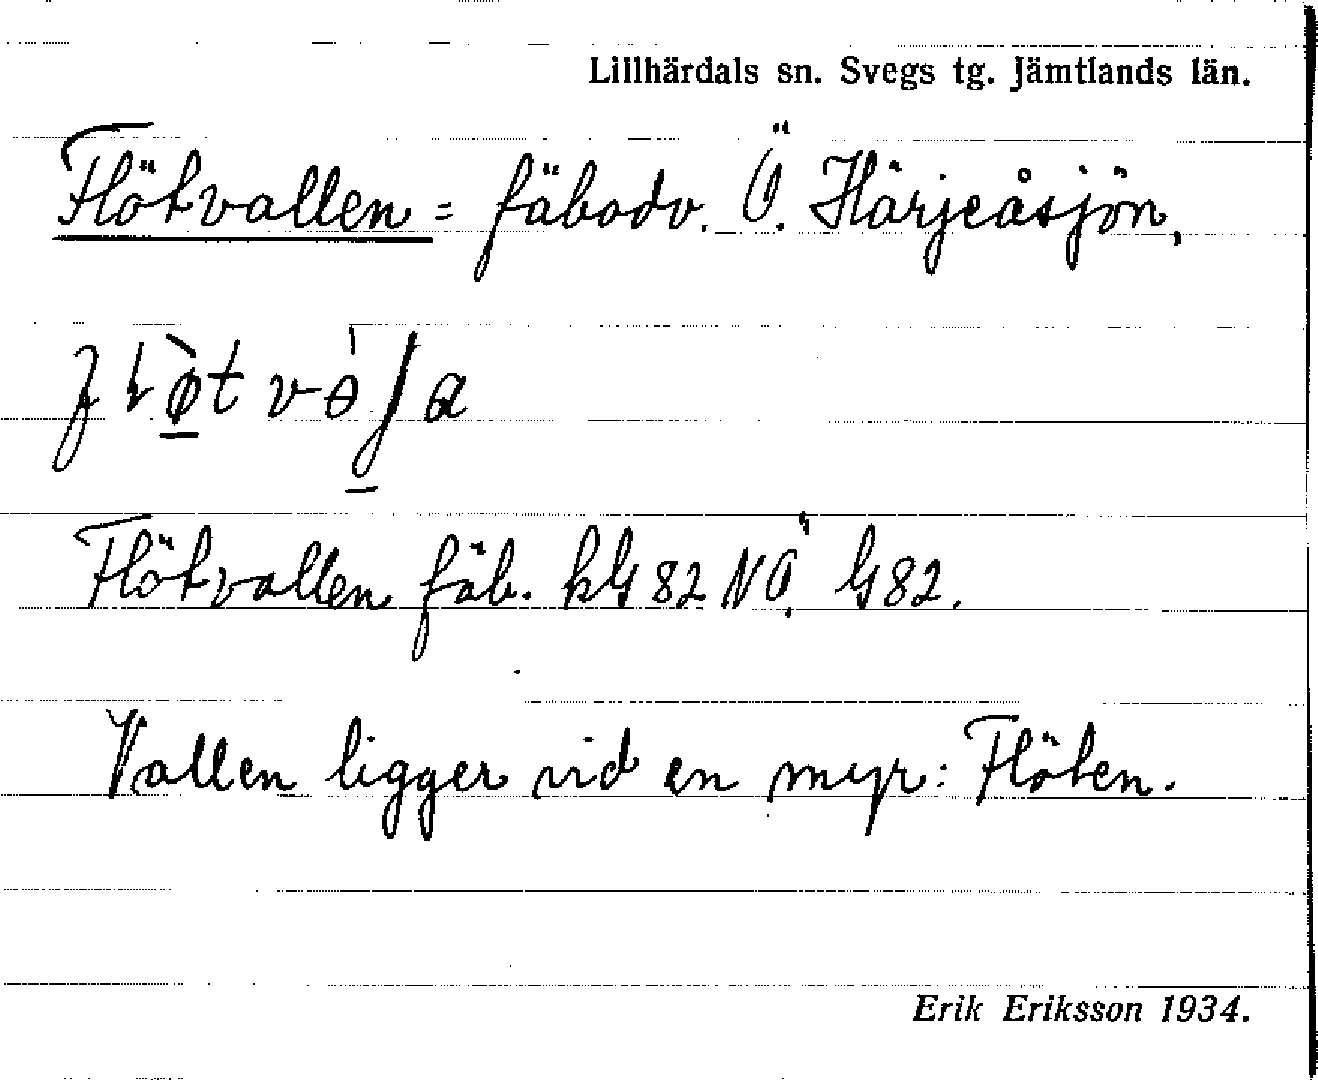 Lillhärdals sn. Svegs tg. Jämtlands län.
Flötvallen = fäbodv. Ö. Härjeåsjön,
Flötvallen fäb. kG 82 NÖ. G 82.
Vallen ligger vid en myr: Flöten.
Erik Eriksson 1934.